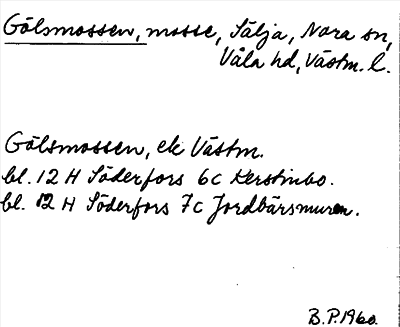 Gölsmossen, mosse, Sälja, Nora sn,
Våla hd, Västm. l.
Gölsmossen, ek Västm.
bl. 12 H Söderfors 6c Kerstinbo.
bl. 12 H Söderfors 7c Jordbärsmuren.
B.P. 1960